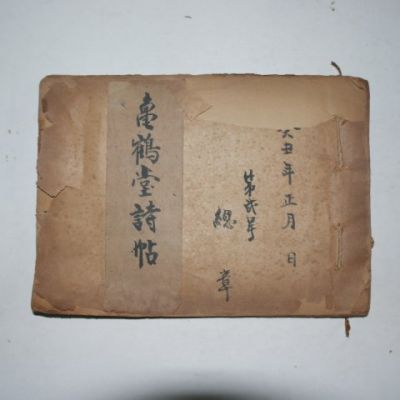 癸丑年正月 日
第弐号
總 章
亀鶴堂詩帖